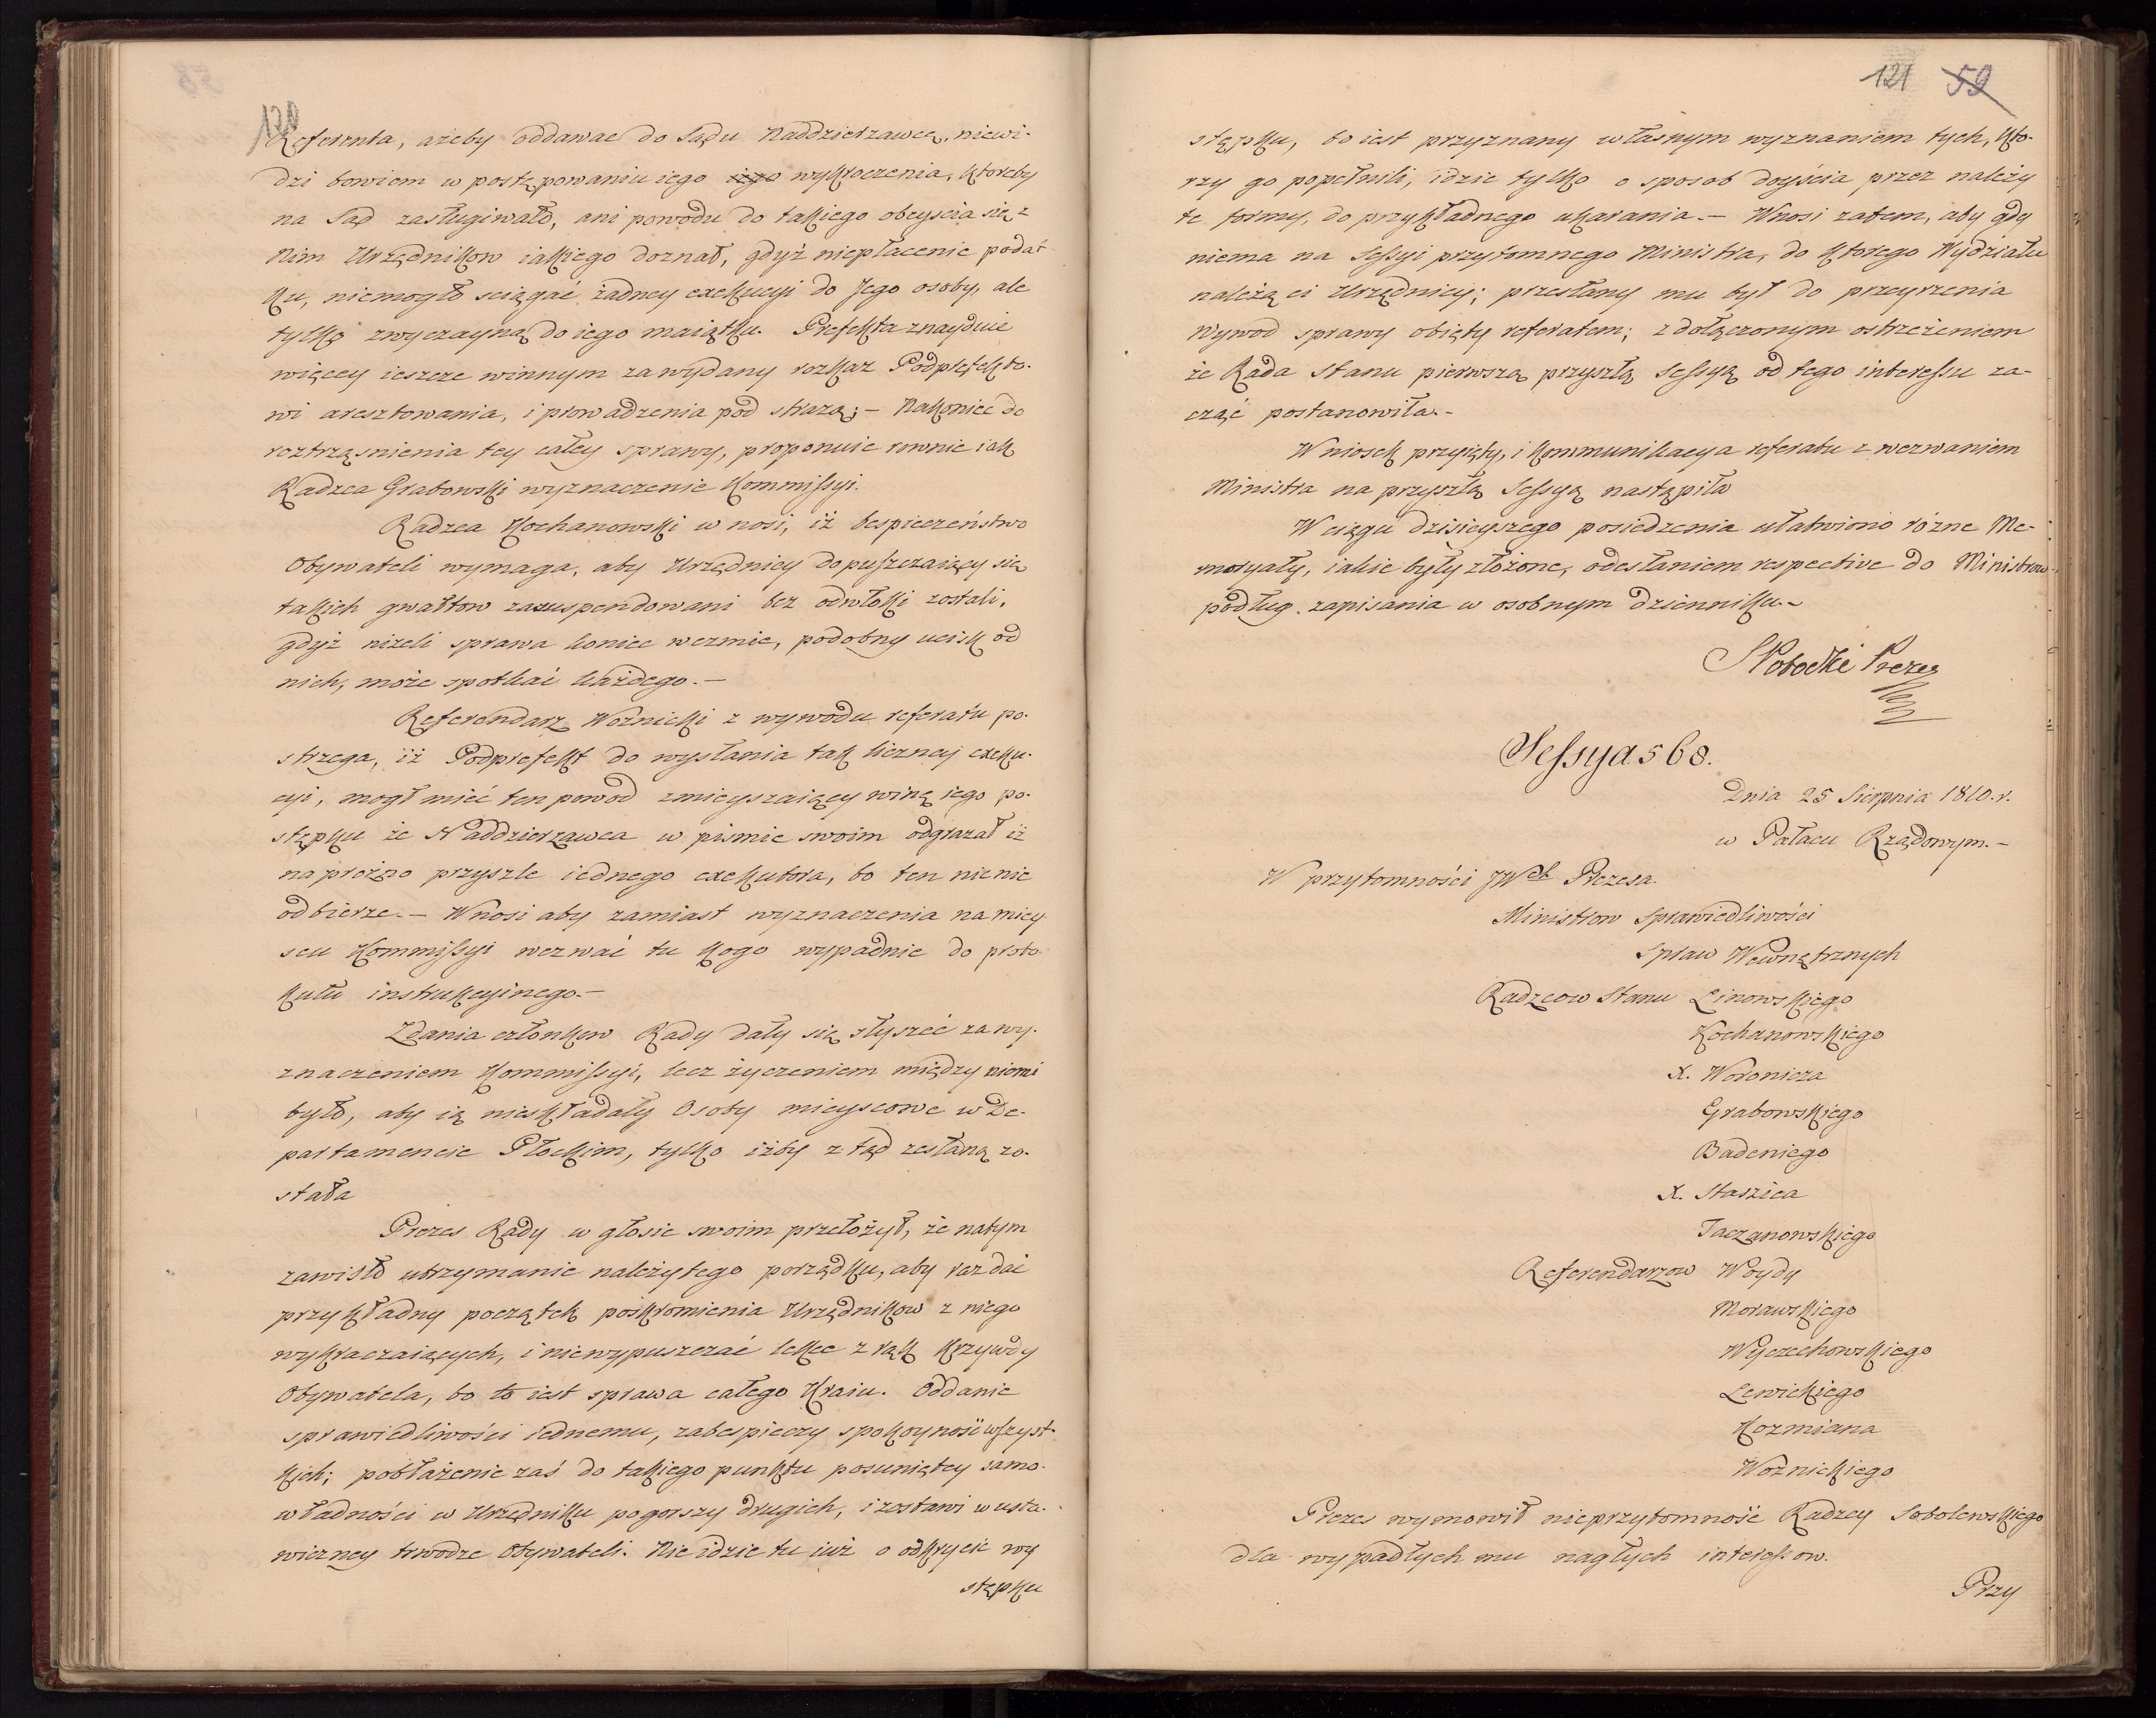 120
Referenta, ażeby oddawac do Sądu Naddzierzawcę, niewi-
dzi bowiem w postępowaniu iego iego wykroczenia, ktoreby
na Sąd zasługiwało, ani powodu do takiego obeyscia się z
Nim Urzędnikow iakiego doznał, gdyż niepłacenie podat
ku, niemogło sciągać żadney exekucyi do Jego osoby, ale
tylko zwyczayną do iego maiątku. Prefekta znayduie
więcey ieszcze winnym za wydany rozkaz Podprefekto-
wi aresztowania, i prowadzenia pod strażą; – Nakoniec do
roztrząsnienia tey całey sprawy, proponuie rownie iak
Radzca Grabowski wyznaczenie Kommissyi.
Radzca Kochanowski wnosi, iż bespieczeństwo
Obywateli wymaga, aby Urzędnicy dopuszczaiący się
takich gwałtow zasuspendowani bez odwłoki zostali,
gdyż niżeli sprawa koniec wezmie, podobny ucisk od
nich, może spotkać każdego. –
Referendarz Woźnicki z wywodu referatu po-
strzega, iż Podprefekt do wysłania tak liczney exeku-
cyi, mogł mieć ten powod zmieyszaiący winę iego po-
stępku że Naddzierzawca w pismie swoim odgrazał iż
naprożno przyszle iednego exekutora, bo ten nic nie
odbierze. – Wnosi aby zamiast wyznaczenia na miey
scu Kommissyi wezwać tu kogo wypadnie do proto-
kułu instrukcyinego. –
Zdania członkow Rady dały się słyszeć za wy-
znaczeniem Kommissyi, lecz życzeniem między niemi
było, aby ią nieskładały Osoby mieyscowe w De-
partamencie Płockim, tylko iżby z tąd zesłaną zo-
stała
Prezes Rady w głosie swoim przełożył, że natym
zawisło utrzymanie należytego porządku, aby raz dać
przykładny początek poskromienia Urzędnikow z niego
wykraczaiących, i niewypuszczać lekce z rąk krzywdy
Obywatela, bo to iest sprawa całego Kraiu. Oddanie
sprawiedliwości iednemu, zabespieczy spokoyność wszyst-
kich; pobłażenie zaś do takiego punktu posuniętey samo-
władności w Urzędniku pogorszy drugich, i zostawi w usta-
wiczney trwodze Obywateli. Nie idzie tu iuż o odkrycie wy
stępku
121 59
stępku, bo iest przyznany własnym wyznaniem tych, kto-
rzy go popełnili, idzie tylko o sposob doyścia przez należy
te formy, do przykładnego ukarania. – Wnosi zatem, aby gdy
niema na Sessyi przytomnego Ministra, do ktorego Wydziału
należą ci Urzędnicy; przesłany mu był do przeyrzenia
Wywod sprawy obięty referatem; z dołączonym ostrzeżeniem
że Rada Stanu pierwszą przyszłą Sessyą od tego interessu za-
cząć postanowiła. –
Wniosek przyięty, i kommunikacya referatu z wezwaniem
Ministra na przyszłą Sessyą nastąpiła
W ciągu dzisieyszego posiedzenia ułatwiono różne Me-
moryały, iakie były złożone, odesłaniem respective do Ministrow
podług zapisania w osobnym dzienniku. –
S Potocki Prezes
Sessya 568.
Dnia 25 Sierpnia 1810. r.
w Pałacu Rządowym. –
W przytomności JWch Prezesa.
Ministrow Sprawiedliwości
Spraw Wewnętrznych
Radzcow Stanu Linowskiego
Kochanowskiego
X. Woronicza
Grabowskiego
Badeniego
X. Staszica
Taczanowskiego
Referendarzow Woydy
Morawskiego
Wyczechowskiego
Lewickiego
Kozmiana
Woźnickiego
Prezes wymowił nieprzytomność Radzcy Sobolewskiego
dla wypadłych mu nagłych interessow.
Przy